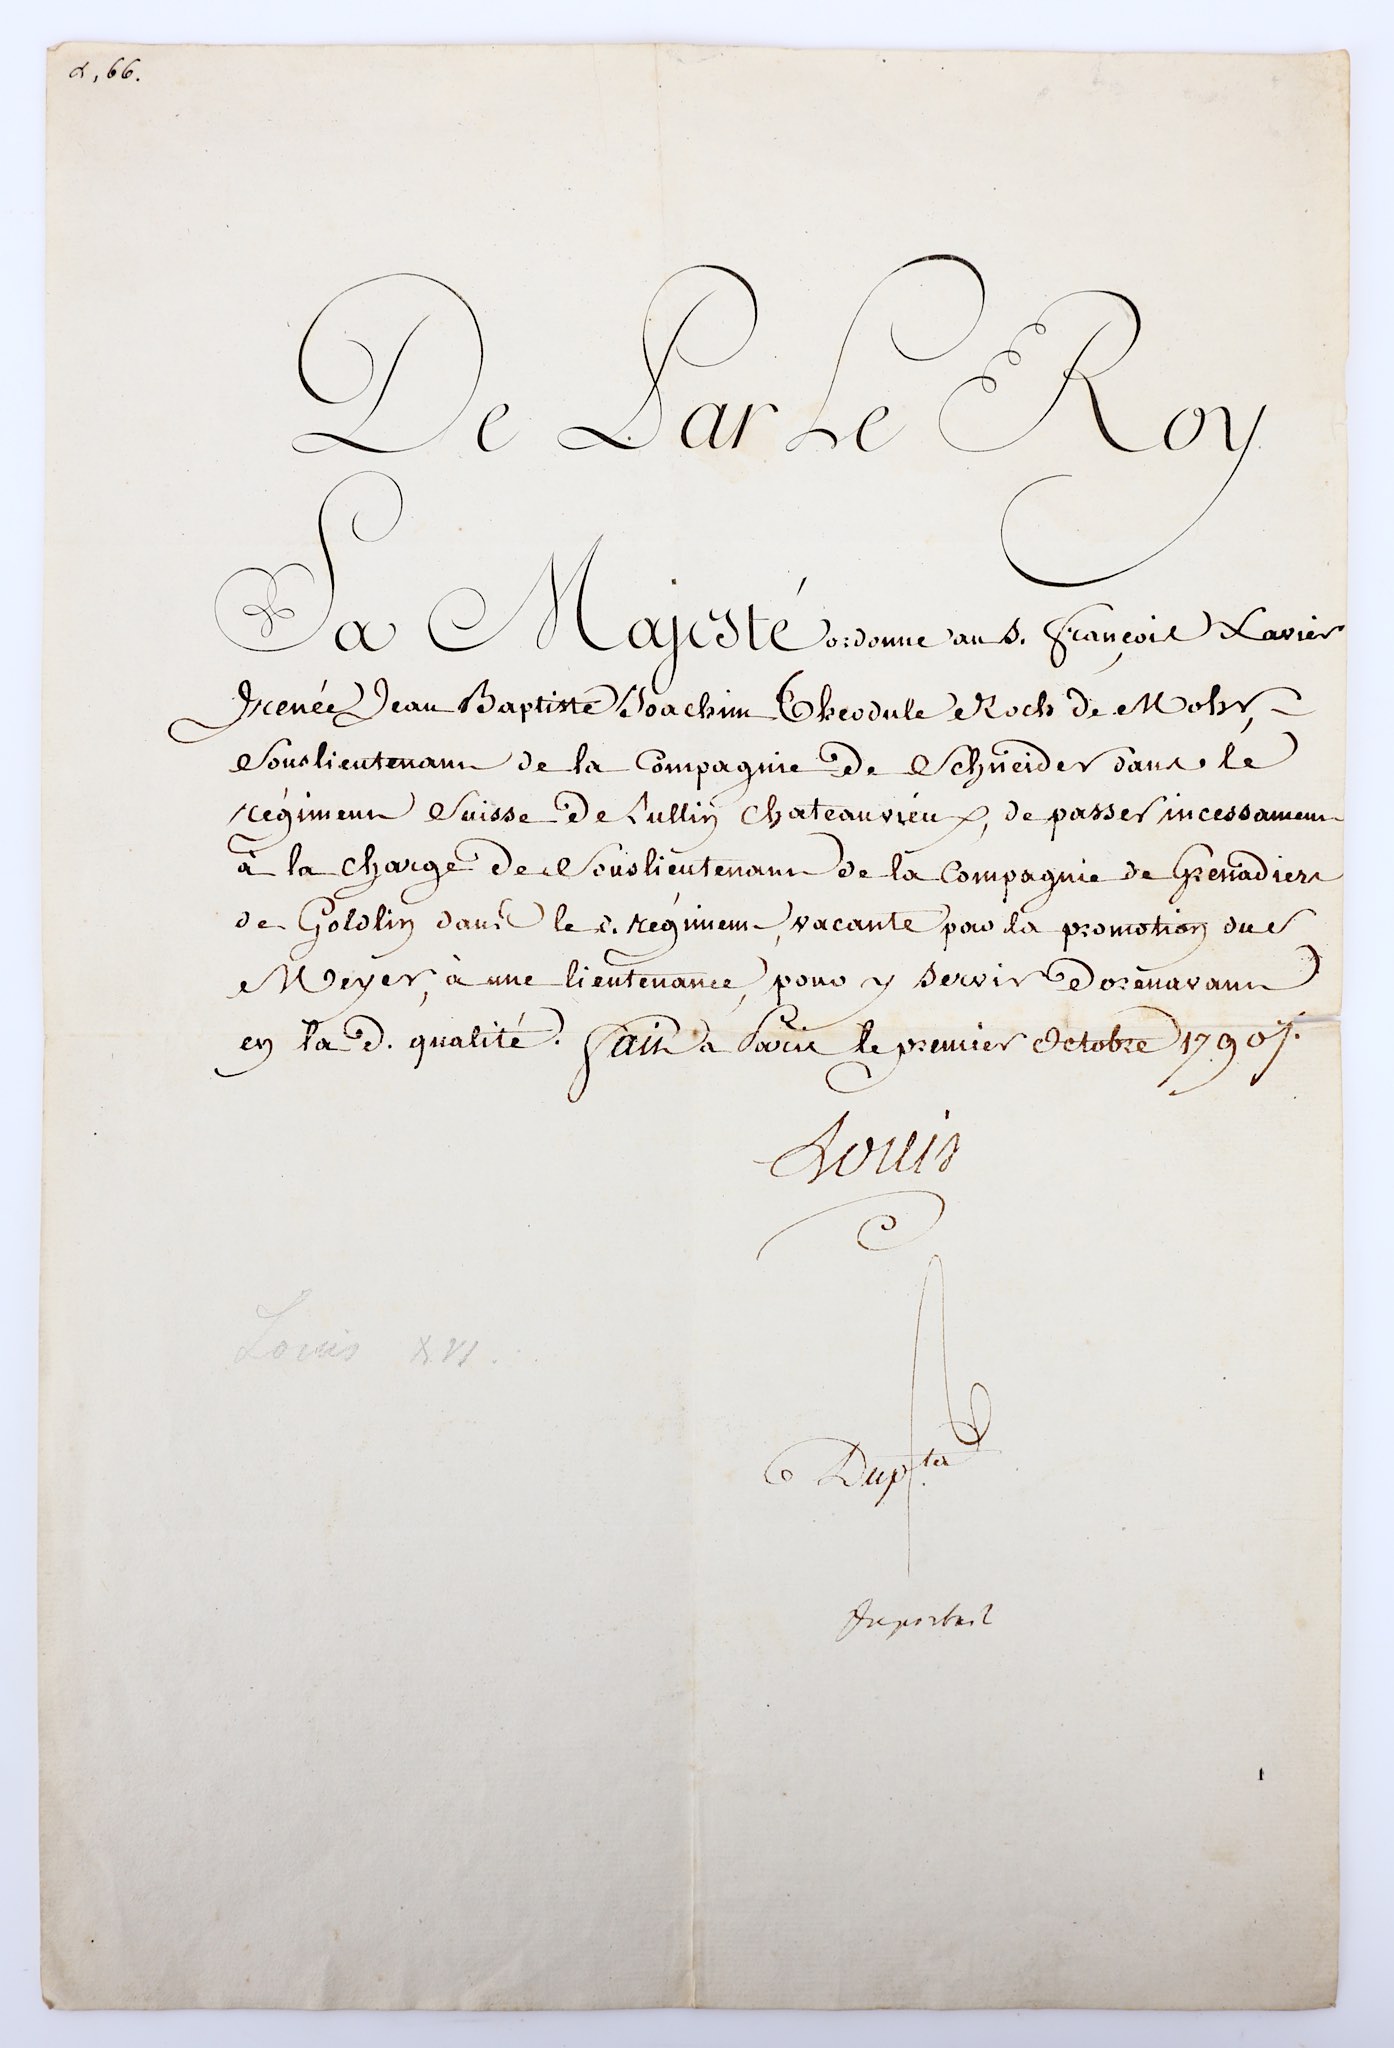 2, 66.
De Par Le Roy
Sa Majesté ordonne au S. François Xavier
Irenée Jean Baptiste Joachim Theodule Roch de Mohr,
Souslieutenant de la Compagnie de Schneider dans le
régiment Suisse de Lullin Chateauvieux, de passer incessament
à la charge de Souslieutenant de la Compagnie de Grenadiers
de Goldlin dans le d. régiment, vacante par la promotion du S
Meyer, à une lieutenance, pour y servir dorénavant
en la d. qualité. Fait à Paris le premier Octobre 1790.
Louis
Louis XVI.
1